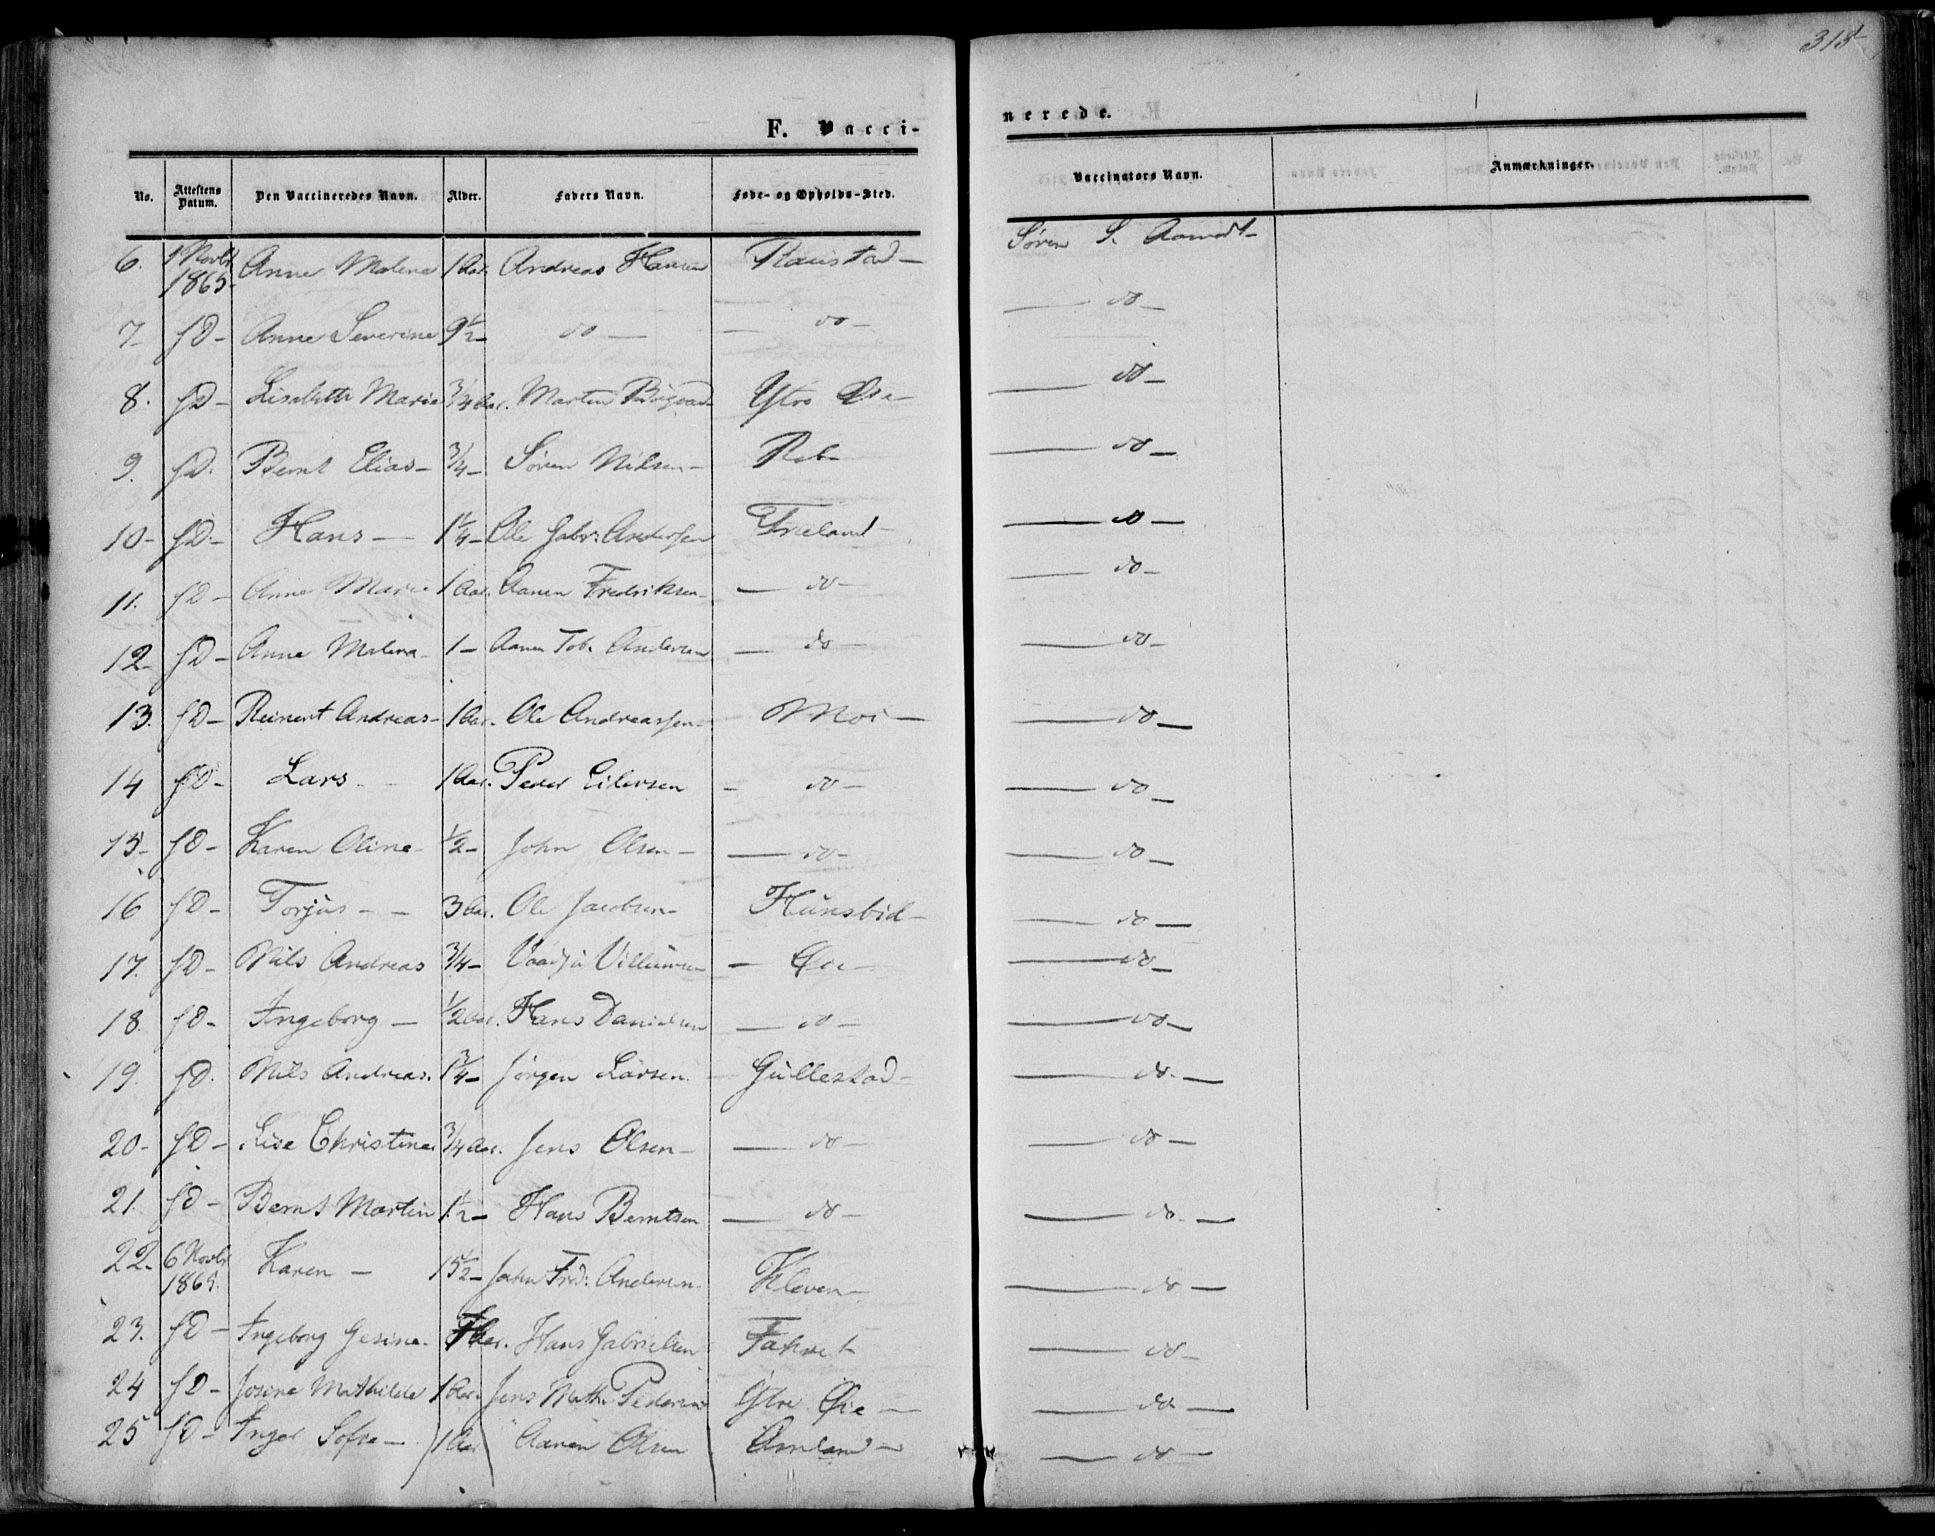 313
F. Vacci-
nerede.
No. Attestens Datum. Den Vaccineredes Navn. Alder. Faders Navn. Føde- og Opholds-Sted. Vaccinators Navn. Anmærkninger.
6. 1 Novbr 1865 Anne Malene 1 Aar. Andreas Hansen Raustad - Søren S. Aamodt -
7 - sD - Anne Severine 9½ - do - - do - - do -
8. sD - Lisabeth Marie ¾ Aar. Martin Ytre Øie - - do -
9. sD. Bernt Elias - ¾ - Søren Nilsen - - do -
10 - sD - Hans - 1¼ - Ole Gabr: Andersen Frieland - - do -
11. sD - Anne Marie 1 Aar. Aanen Fredriksen - - do - - do -
12 - sD - Anne Malena - 1 - Aanen Tob. Andersen - do - - do -
13. sD - Reinert Andreas - 1 Aar. Ole Andreassen - Moi - - do -
14 sD - Lars - 1 Aar. Peder Eilersen - do - - do -
15 - sD - Karen Oline - ½ - John Olsen - - do - - do -
16 sD - Torjus - - 3 Aar. Ole Jacobsen - Hunsbid - - do -
17. sD - Nils Andreas ¾ - Villumsen - Øie - - do -
18. sD - Ingeborg - ½ Aar. Hans Danielsen - do - - do -
19. sD. Nils Andreas. 1¾ - Jørgen Larsen. Gullestad - - do. -
20 - sD - Lise Christine ¾ Aar. Jens Olsen - - do - - do -
21. sD - Bernt Martin 1½ - Hans Berntsen - do - - do. -
22. 6 Novbr 1865. Karen - 15½ - John Fred: Andersen. Kleven - - do -
23. sD - Ingeborg Gesine - Aar. Hans Gabrielsen Fahret - do -
24 sD - Josine Mathilde 1 Aar. Jens Math. Pedersen Ytre Øie - - do -
25 sD - Inger Sofie - 1 Aar Aanen Olsen - - do -